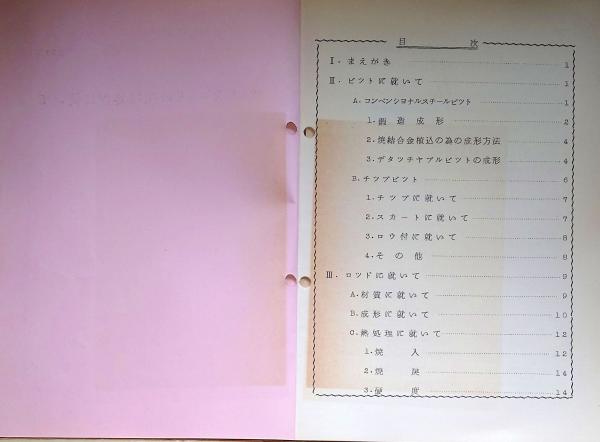 目 次
Ⅰ. まえがき 1
Ⅱ. ビツトに就いて 1
A. コンベンシヨナルスチールビツト 1
1. 鍛造成形 2
2. 焼結合金植込の為の成形方法 4
3. デタツチヤブルビツトの成形 4
B. チツプビツト 6
1. チツプに就いて 7
2. スカートに就いて 7
3. ロウ付に就いて 8
4. その他 8
Ⅲ. ロツドに就いて 9
A. 材質に就いて 9
B. 成形に就いて 10
C. 熱処理に就いて 12
1. 焼入 12
2. 焼戻 14
3. 硬度 14